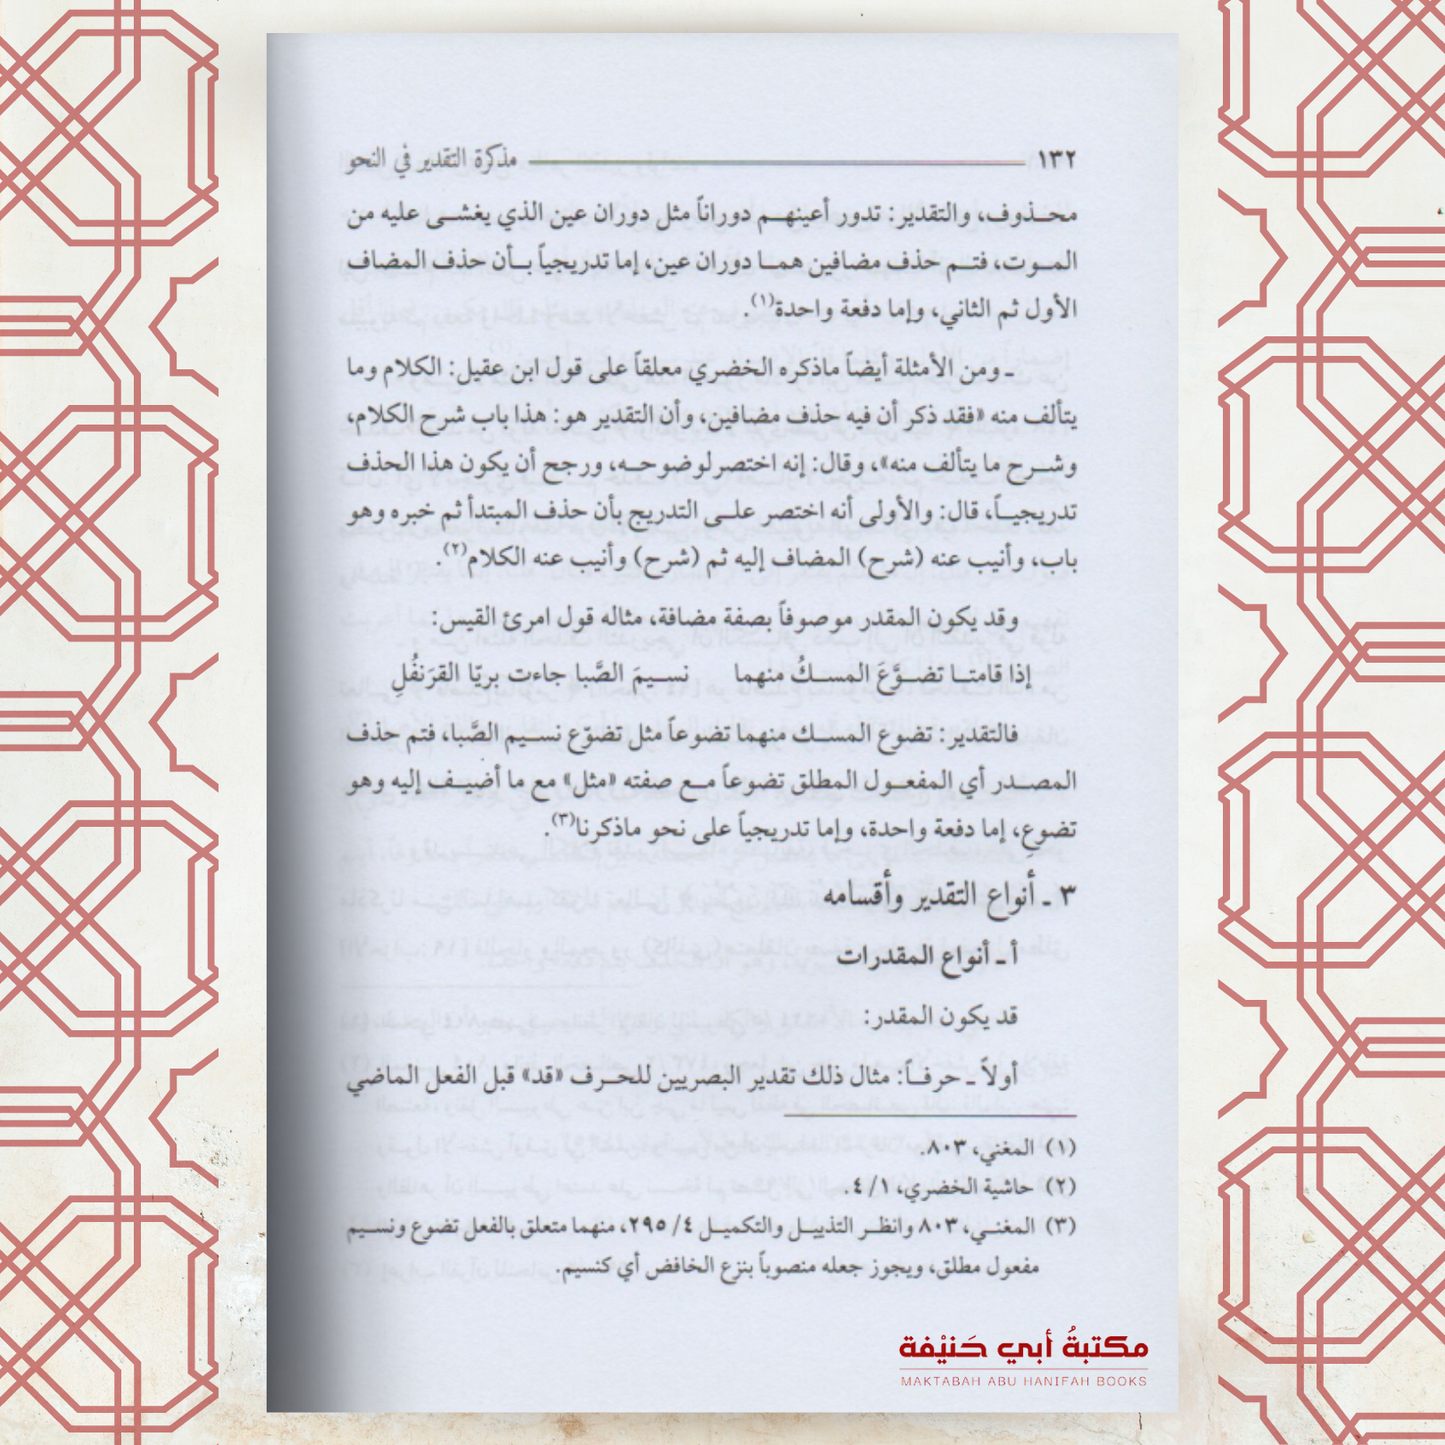 ١٣٢ مذكرة التقدير في النحو
محذوف، والتقدير: تدور أعينهم دوراناً مثل دوران عين الذي يغشى عليه من
الموت، فتم حذف مضافين هما دوران عين، إما تدريجياً بأن حذف المضاف
الأول ثم الثاني، وإما دفعة واحدة(١).
ـ ومن الأمثلة أيضاً ماذكره الخضري معلقاً على قول ابن عقيل: الكلام وما
يتألف منه «فقد ذكر أن فيه حذف مضافين، وأن التقدير هو: هذا باب شرح الكلام،
وشرح ما يتألف منه»، وقال: إنه اختصر لوضوحه، ورجح أن يكون هذا الحذف
تدريجياً، قال: والأولى أنه اختصر على التدريج بأن حذف المبتدأ ثم خبره وهو
باب، وأنيب عنه (شرح) المضاف إليه ثم (شرح) وأنيب عنه الكلام(٢).
وقد يكون المقدر موصوفاً بصفة مضافة، مثاله قول امرئ القيس:
إذا قامتا تضوَّعَ المسكُ منهما نسيمَ الصَّبا جاءت بريّا القرَنفُلِ
فالتقدير: تضوع المسك منهما تضوعاً مثل تضوّع نسيم الصَّبا، فتم حذف
المصدر أي المفعول المطلق تضوعاً مع صفته «مثل» مع ما أضيف إليه وهو
تضوعِ، إما دفعة واحدة، وإما تدريجياً على نحو ماذكرنا(٣).
٣ ـ أنواع التقدير وأقسامه
أ ـ أنواع المقدرات
قد يكون المقدر:
أولاً ـ حرفاً: مثال ذلك تقدير البصريين للحرف «قد» قبل الفعل الماضي
(١) المغني، ٨٠٣.
(٢) حاشية الخضري، ٤/١.
(٣) المغني، ٨٠٣ وانظر التذييل والتكميل ٢٩٥/٤، منهما متعلق بالفعل تضوع ونسيم
مفعول مطلق، ويجوز جعله منصوباً بنزع الخافض أي كنسيم.
مكتبةُ أبي حَنيْفة
MAKTABAH ABU HANIFAH BOOKS